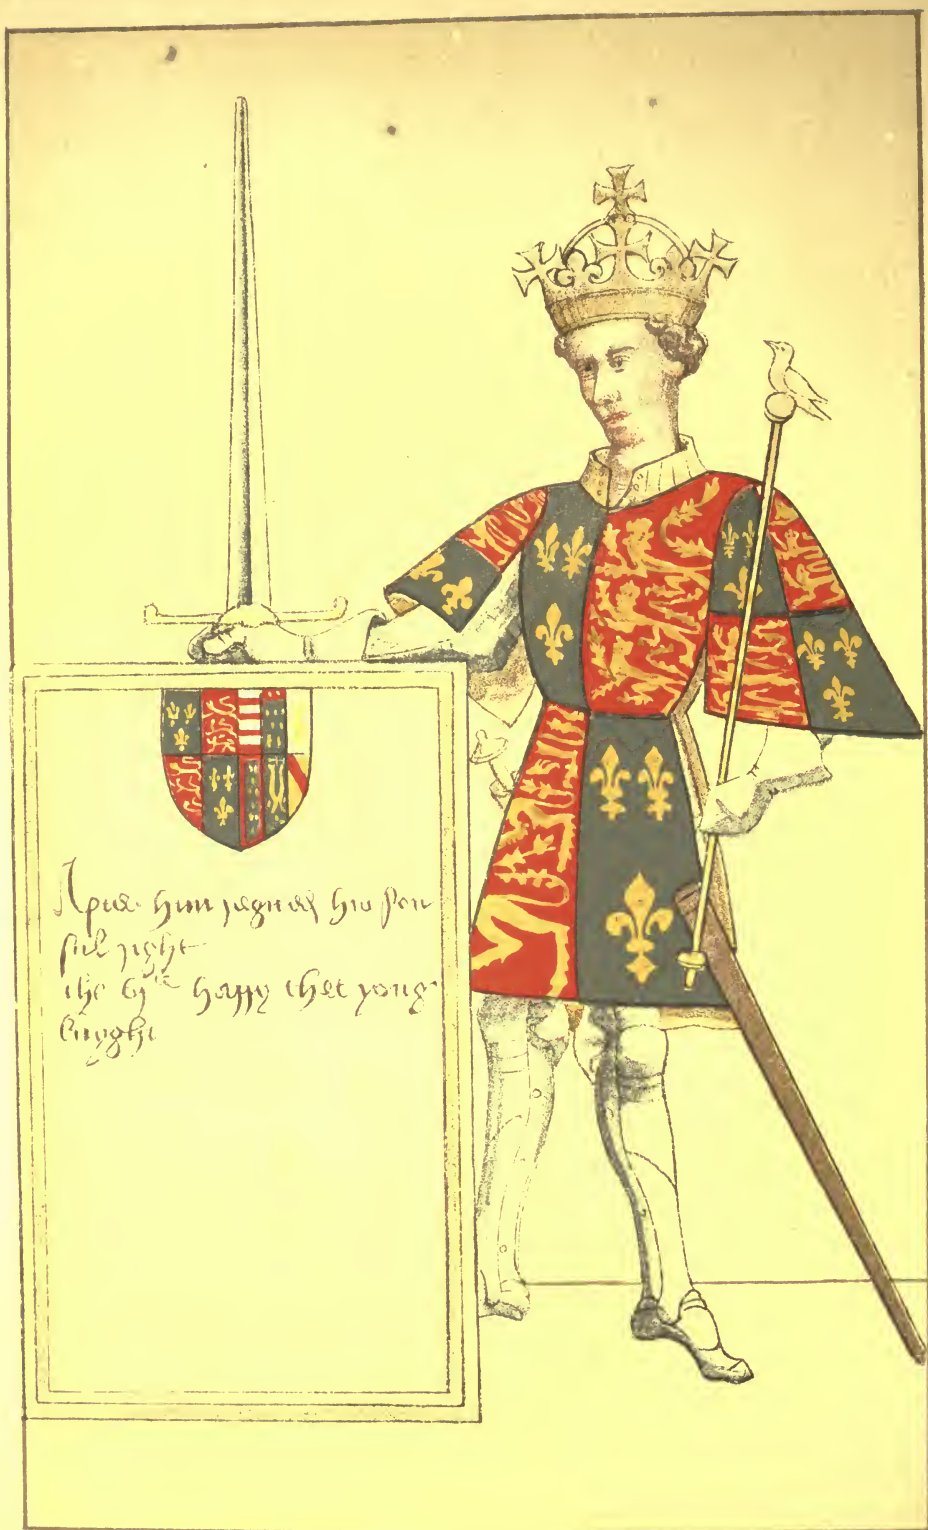 him regned his son
ful right
the vjte harry that yong
knyght